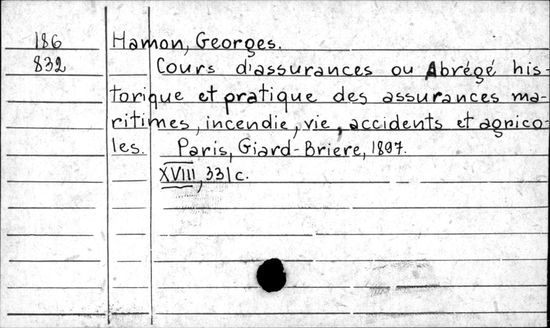 186 Hamon, Georges.
832 Cours d'assurances ou Abrégé his-
torique et pratique des assurances ma-
ritimes, incendie, vie, accidents et agrico-
les. Paris, Giard-Briere, 1897.
XVIII, 331 c.